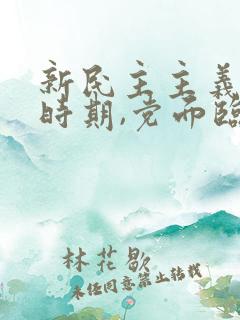 新民主主義
時期,党面臨
林花歇
未经同意禁止转载